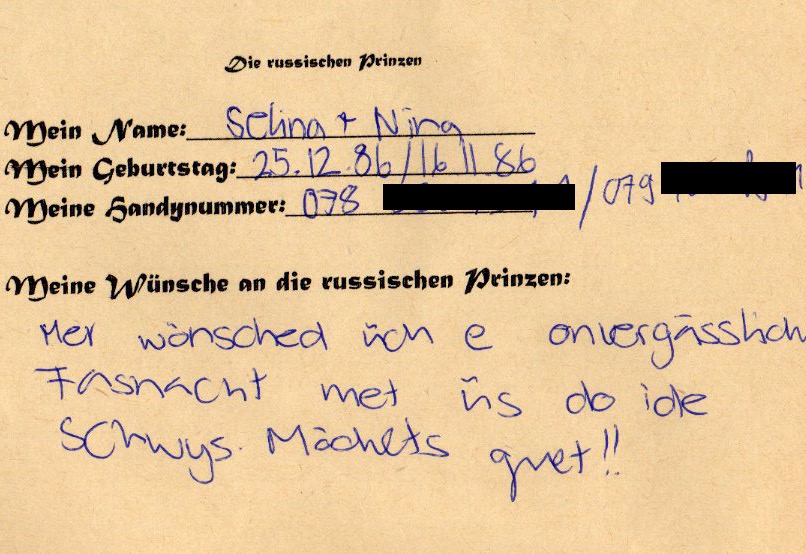 Die russischen Prinzen
Mein Name: Selina + Nina
Mein Geburtstag: 25.12.86/16.11.86
Meine Handynummer: 078 / 079
Meine Wünsche an die russischen Prinzen:
Mer wönsched üch e onvergässlich
Fasnacht met üs do ide
Schwys. Mächets guet!!